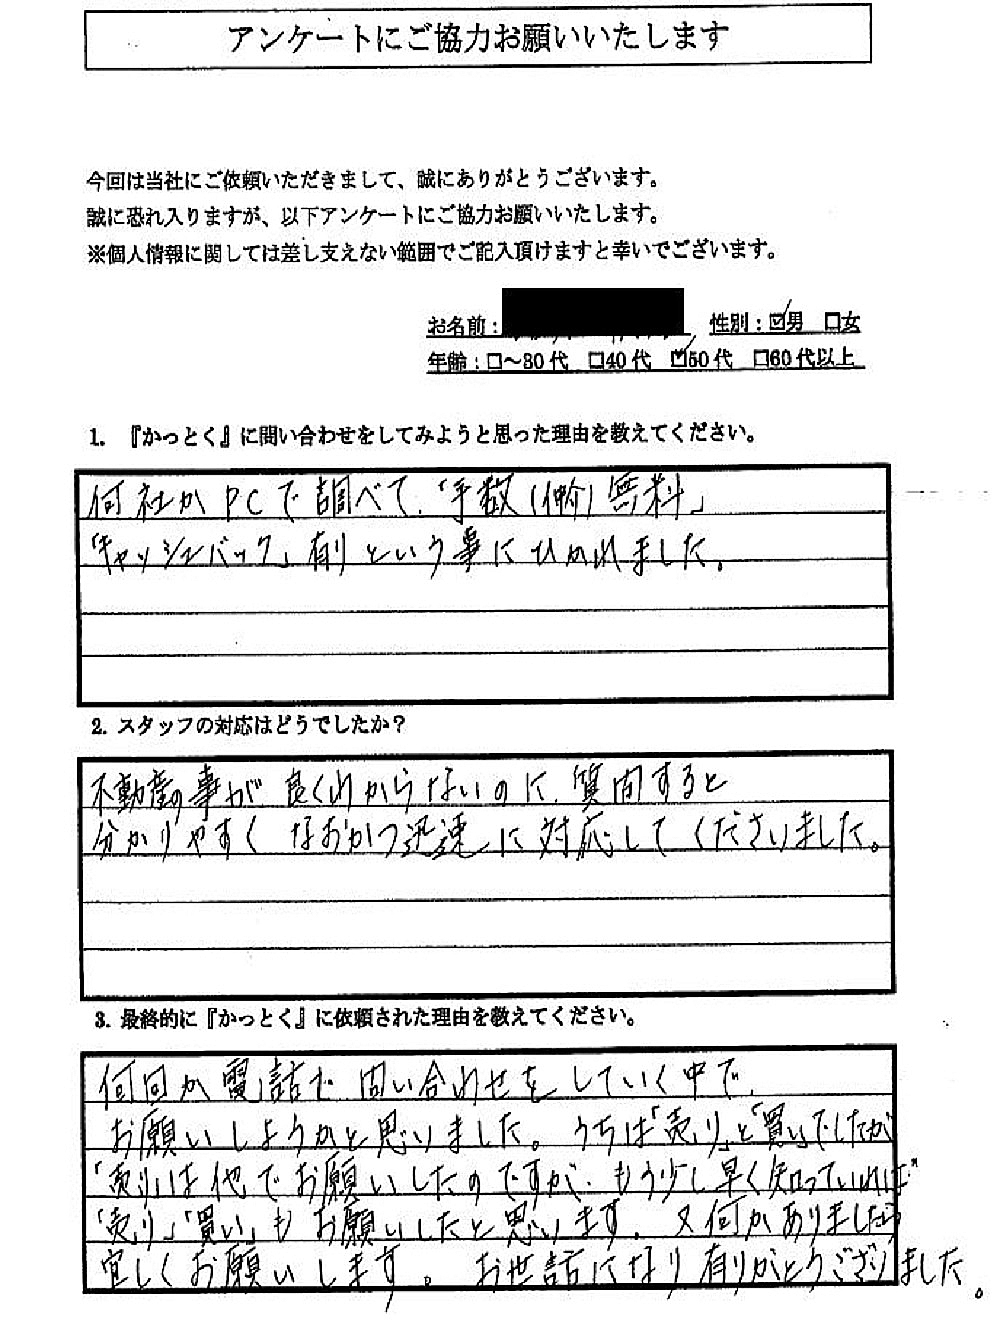 アンケートにご協力お願いいたします
今回は当社にご依頼いただきまして、誠にありがとうございます。
誠に恐れ入りますが、以下アンケートにご協力お願いいたします。
※個人情報に関しては差し支えない範囲でご記入頂けますと幸いでございます。
お名前： 性別：☑男 □女
年齢：□～30代 □40代 ☑50代 □60代以上
1. 『かっとく』に問い合わせをしてみようと思った理由を教えてください。
何社かPCで調べて、「手数(仲介)無料」
「キャッシュバック」有りという事にひかれました。
2. スタッフの対応はどうでしたか？
不動産の事が良くわからないのに、質問すると
分かりやすくなおかつ迅速に対応してくださいました。
3. 最終的に『かっとく』に依頼された理由を教えてください。
何回か電話で問い合わせをしていく中で、
お願いしようかと思いました。うちは「売り」と「買い」でしたが
「売り」は他でお願いしたのですが、もう少し早く知っていれば
「売り」「買い」もお願いしたと思います。又何かありましたら
宜しくお願いします。お世話になり有りがとうござりました。